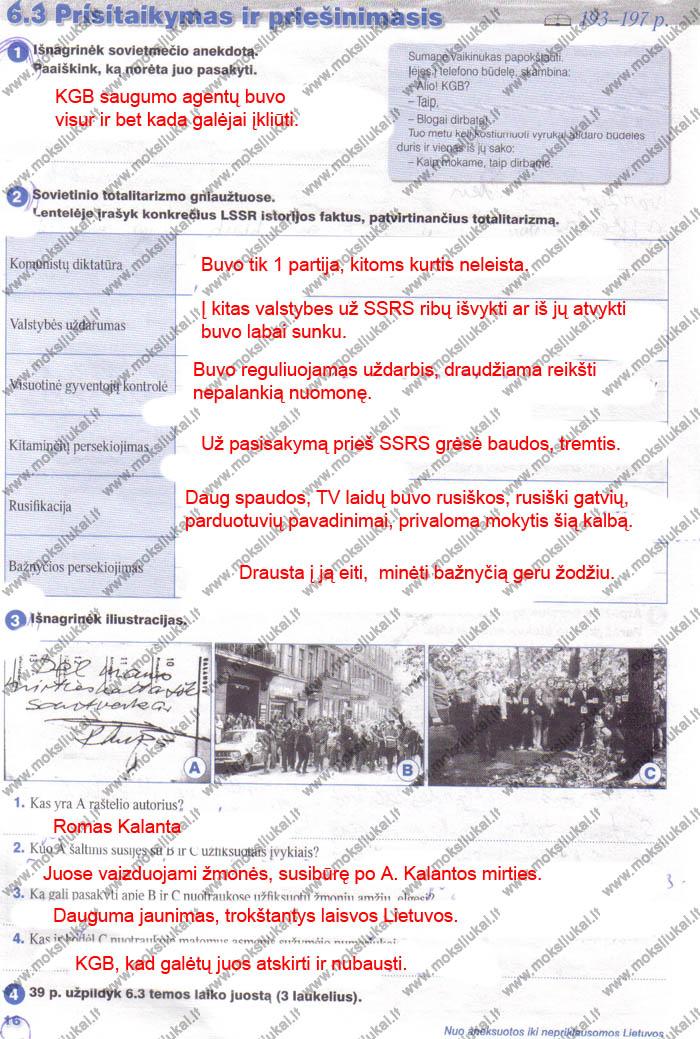 6.3 Prisitaikymas ir priešinimasis
193–197 p.
1 Išnagrinėk sovietmečio anekdotą.
Paaiškink, ką norėta juo pasakyti.
KGB saugumo agentų buvo
visur ir bet kada galėjai įkliūti.
Sumanė vaikinukas papokštauti.
Įėjęs į telefono būdelę, skambina:
– Alio! KGB?
– Taip.
– Blogai dirbate!
Tuo metu keli kostiumuoti vyrukai atidaro būdelės
duris ir vienas iš jų sako:
– Kaip mokame, taip dirbame.
2 Sovietinio totalitarizmo gniaužtuose.
Lentelėje įrašyk konkrečius LSSR istorijos faktus, patvirtinančius totalitarizmą.
Komunistų diktatūra
Buvo tik 1 partija, kitoms kurtis neleista.
Valstybės uždarumas
Į kitas valstybes už SSRS ribų išvykti ar iš jų atvykti
buvo labai sunku.
Visuotinė gyventojų kontrolė
Buvo reguliuojamas uždarbis, draudžiama reikšti
nepalankią nuomonę.
Kitaminčių persekiojimas
Už pasisakymą prieš SSRS grėsė baudos, tremtis.
Rusifikacija
Daug spaudos, TV laidų buvo rusiškos, rusiški gatvių,
parduotuvių pavadinimai, privaloma mokytis šią kalbą.
Bažnyčios persekiojimas
Drausta į ją eiti, minėti bažnyčią geru žodžiu.
3 Išnagrinėk iliustracijas.
Dėl mano
mirties kaltinkit
santvarką
A
B
C
1. Kas yra A raštelio autorius?
Romas Kalanta
2. Kuo A šaltinis susijęs su B ir C užfiksuotais įvykiais?
Juose vaizduojami žmonės, susibūrę po A. Kalantos mirties.
3. Ką gali pasakyti apie B ir C nuotraukose užfiksuotų žmonių amžių, elgesį?
Dauguma jaunimas, trokštantys laisvos Lietuvos.
4. Kas ir kodėl C nuotraukoje matomus asmenis sužymėjo numeriukai
KGB, kad galėtų juos atskirti ir nubausti.
4 39 p. užpildyk 6.3 temos laiko juostą (3 laukelius).
16
Nuo aneksuotos iki nepriklausomos Lietuvos
www.moksliukai.lt